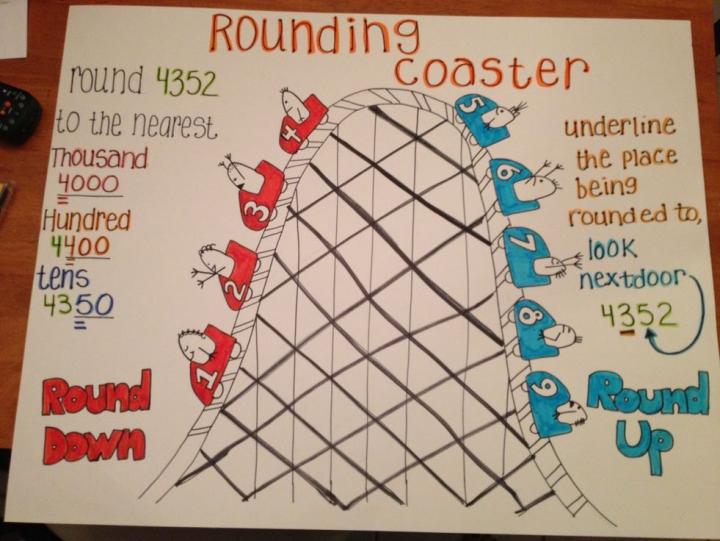 Rounding
coaster
round 4352
to the nearest
Thousand
4000
Hundred
4400
tens
4350
Round
Down
1
2
3
4
5
6
7
8
9
underline
the place
being
rounded to,
look
nextdoor
4352
Round
Up